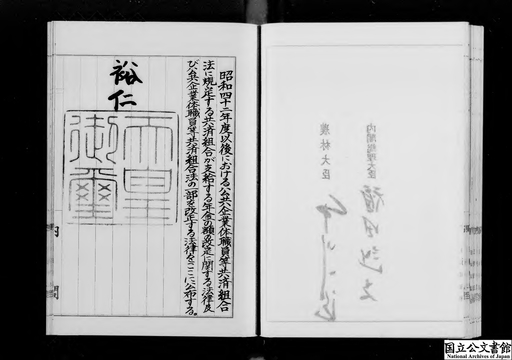 昭和四十二年度以後における公共企業体職員等共済組合
法に規定する共済組合が支給する年金の額の改定に関する法律及
び公共企業体職員等共済組合法の一部を改正する法律をここに公布する。
裕仁
天皇
御璽
内閣
内閣総理大臣
農林大臣
国立公文書館
National Archives of Japan